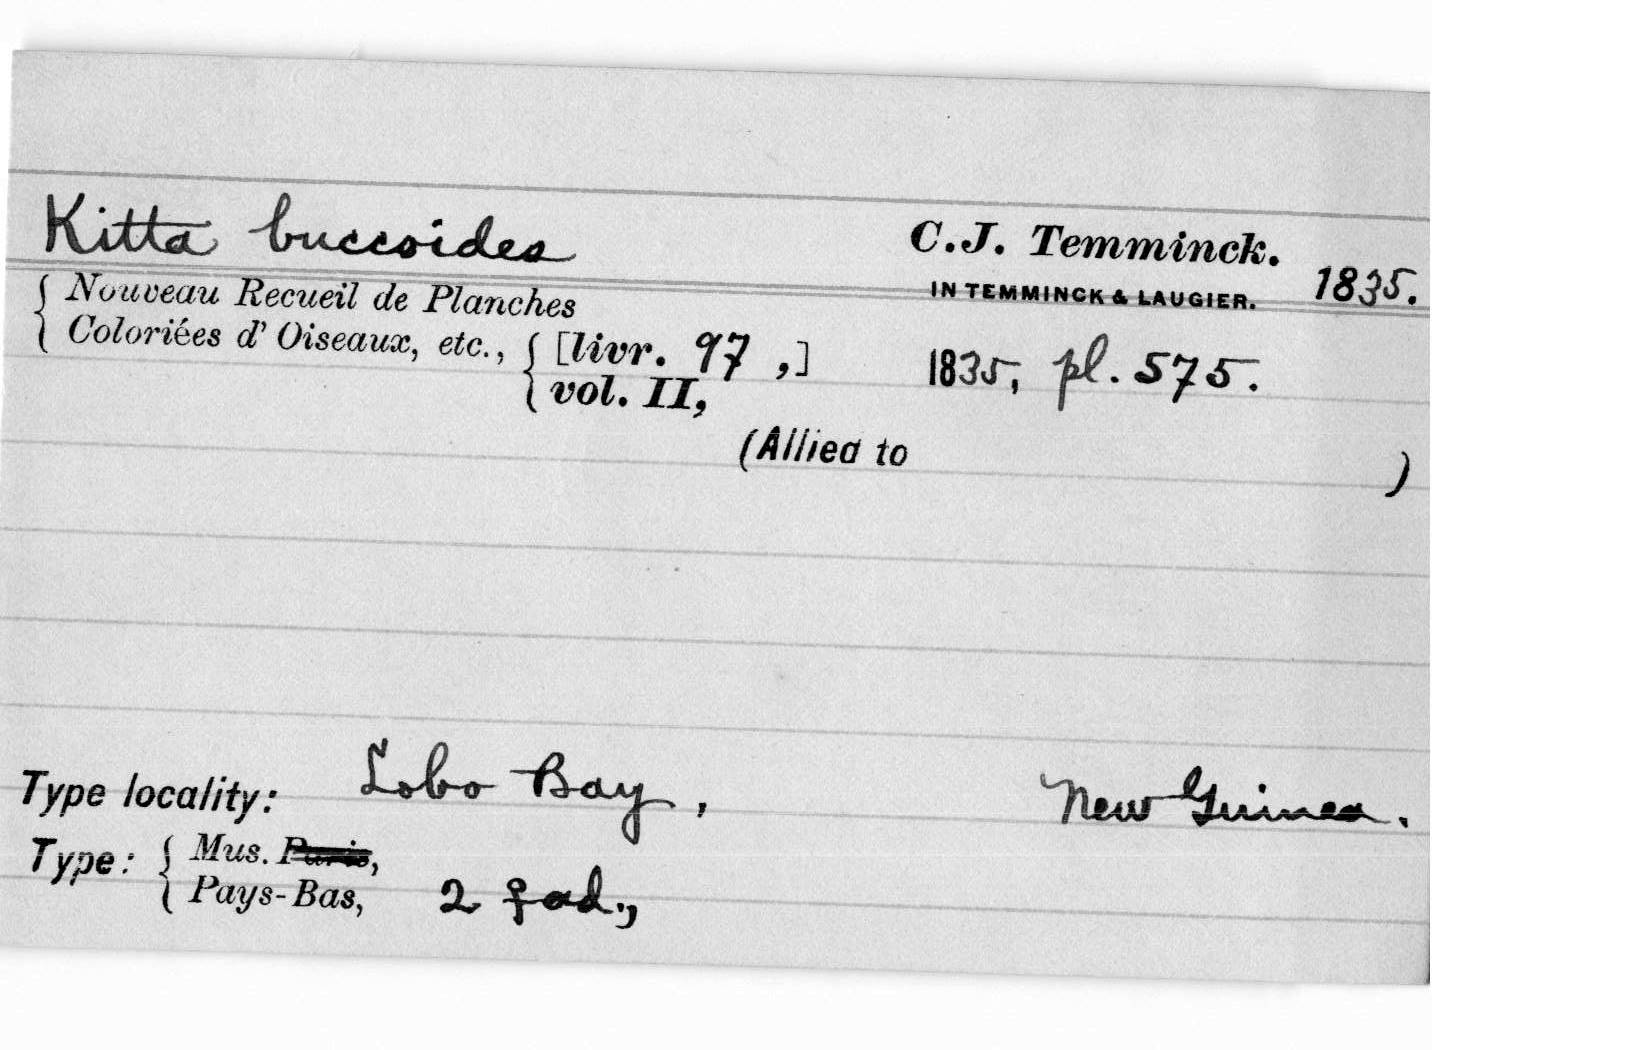 Kitta buccoides C.J. Temminck.
IN TEMMINCK & LAUGIER. 1835.
{ Nouveau Recueil de Planches
Coloriées d' Oiseaux, etc., { [livr. 97 ,] 1835, pl. 575.
vol. II,
(Allied to )
Type locality: Lobo Bay, New Guinea.
Type: { Mus. Paris,
Pays-Bas, 2 ♀ ad.,